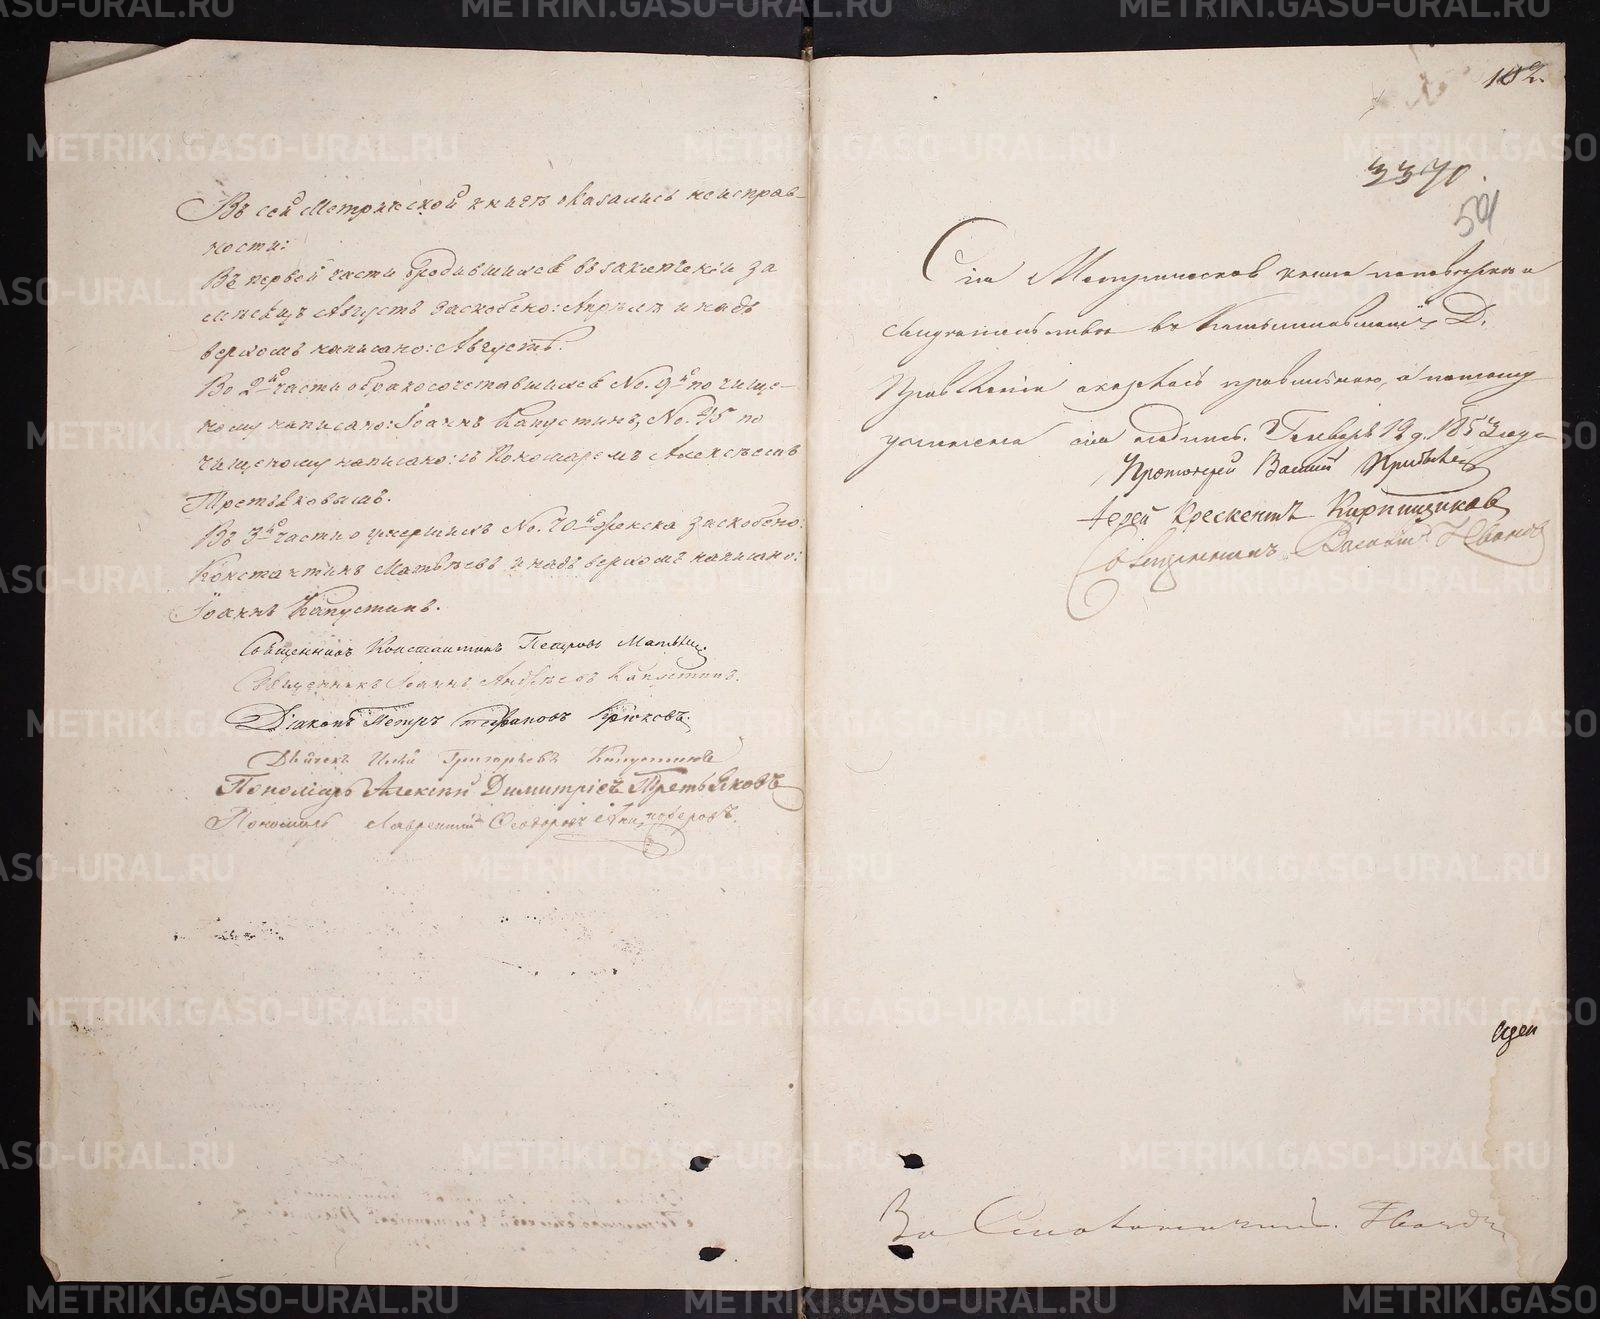 Въ сей Метрической книгѣ оказались неисправ-
ности:
Въ первой части о родившихся въ заключеніи за
мѣсяцъ Августъ заскоблено: Апрѣль и надъ
верхомъ написано: Августъ.
Во 2й части о бракосочетавшихся No. 9й по чище-
ному написано: Іоаннъ Капустинъ, No. 45 по
чищеному написано: съ Пономаремъ Алексѣемъ
Третьяковымъ.
Въ 3й части о умершихъ No. 70й женска заскоблено:
Константинъ Матвѣевъ и надъ верхомъ написано:
Іоаннъ Капустинъ.
Священникъ Константинъ Петровъ
Священникъ Іоаннъ Андреевъ Капустинъ.
Діаконъ Петръ Стефановъ Крюковъ.
Дьячекъ Илья Григорьевъ Капустинъ
Пономарь Алексѣй Димитріевъ Третьяковъ
Пономарь Лаврентій Феодоровъ
102.
3370.
501
Сія Метрическая книга по повѣркѣ и
свидѣтельствѣ въ Камышловскомъ Д.
Правленіи оказалась правильною, а потому
учинена сія надпись. Генваря 19 д. 1853 года
Протоіерей Василій
Іерей Крескентъ Кирпищиковъ
Священникъ Василій Ивановъ
За
METRIKI.GASO-URAL.RU